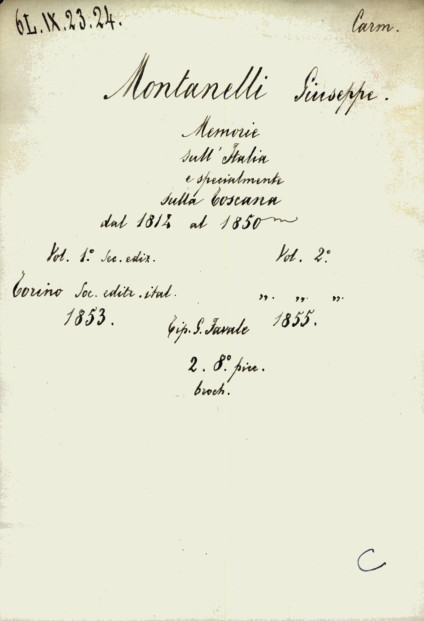 6L.IX.23.24. Carm.
Montanelli Giuseppe.
Memorie
sull'Italia
e specialmente
sulla Toscana
dal 1814 al 1850
Vol. 1.° Sec. ediz. Vol. 2.°
Torino Soc. editr. ital. „ „ „
1853. Tip. G. Favale 1855.
2. 8.° picc.
broch.
C